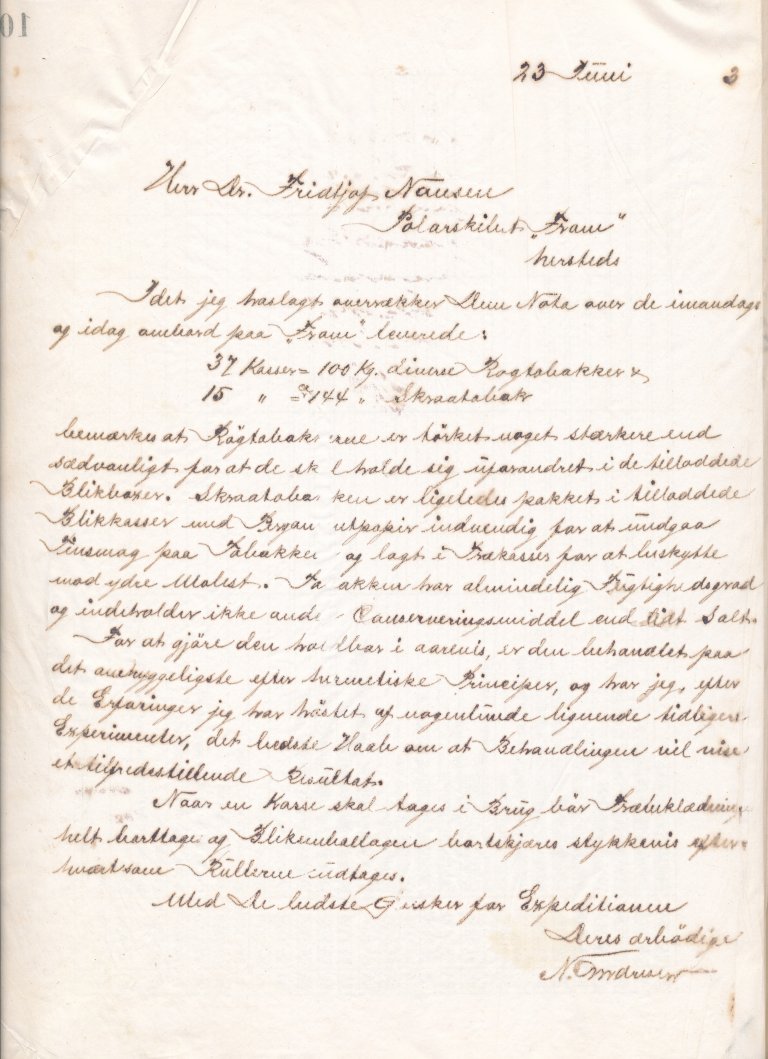 23 Juni 3
Herr Dr. Fridtjof Nansen
Polarskibet „Fram"
hersteds
Idet jeg hoslagt overrækker Dem Nota over de imandags
og idag ombord paa „Fram" leverede:
37 Kasser = 100 Kg. diverse Rögtobakker &
15 „ = 144 „ Skraatobak
bemærkes at Rögtobak erne er törket noget stærkere end
sædvanligt for at de sk l holde sig uforandret i de tilloddede
Blikboxer. Skraatoba ken er ligeledes pakket i tilloddede
Blikkasser med Pergam ntpapir indvendig for at undgaa
Tinsmag paa Tobakke og lagt i Trækasser for at beskytte
mod ydre Molest. To akken har almindelig Fugtighedsgrad
og indeholder ikke ande Conserveringsmiddel end lidt Salt.
For at gjöre den holdbar i aarevis, er den behandlet paa
det omhyggeligste efter hermetiske Principer, og har jeg, efter
de Erfaringer jeg har höstet af nogenlunde lignende tidligere
Experimenter, det bedste Haab om at Behandlingen vil vise
et tilfredsstillende Resultat.
Naar en Kasse skal tages i Brug bör Træbeklædning
helt borttages og Blikemballagen bortskjæres stykkevis efter-
hvert som Rullerne udtages.
Med De bedste Önsker for Expeditionen
Deres ærbödige
N.